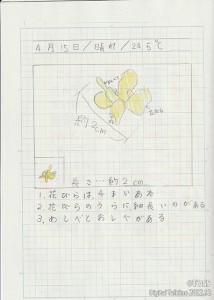 4月15日/晴れ/24.5℃
約2cm
花びら
長さ…約2cm
1.花びらは、4まいある
2.花びらのうらに細長いのがある
3.めしべとおしべがある